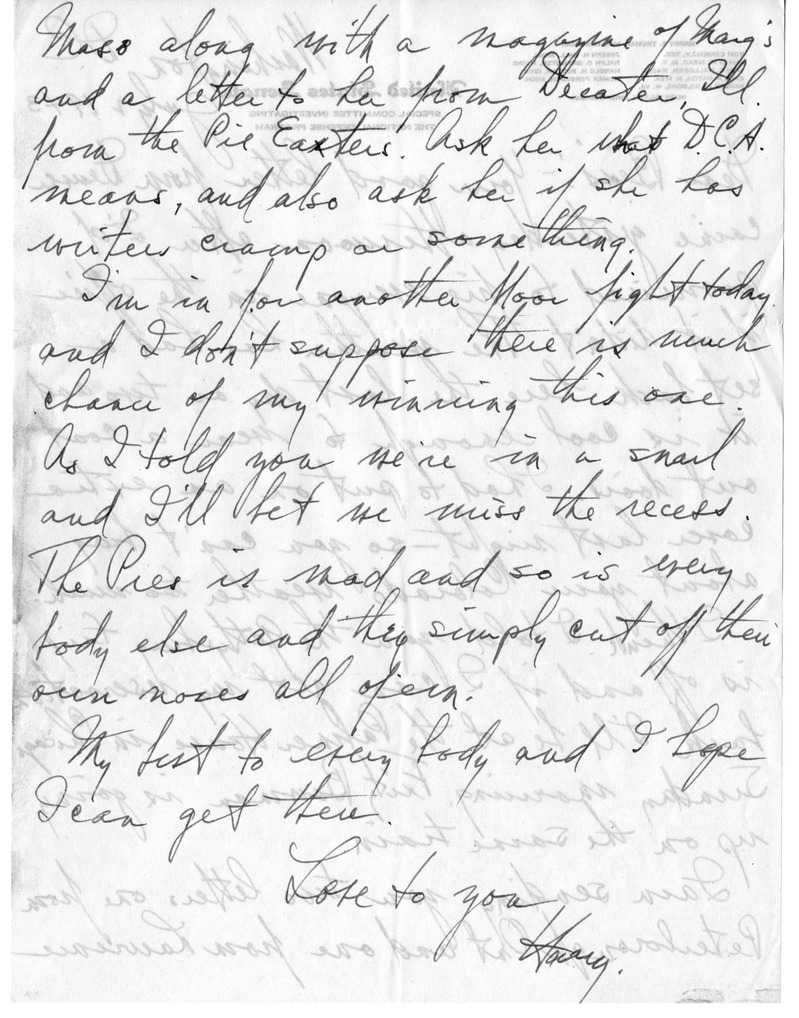 Mass along with a magazine of Marg's
and a letter to her from Decater, Ill.
from the Pie Easters'. Ask her what D.C.A.
means, and also ask her if she has
writers cramp or some thing.
I'm in for another floor fight today
and I don't suppose there is much
chance of my winning this one.
As I told you we're in a snarl
and I'll bet we miss the recess.
The Pres is mad and so is every
body else and they simply cut off their
own noses all of em.
My best to every body and I hope
I can get there.
Love to you
Harry.